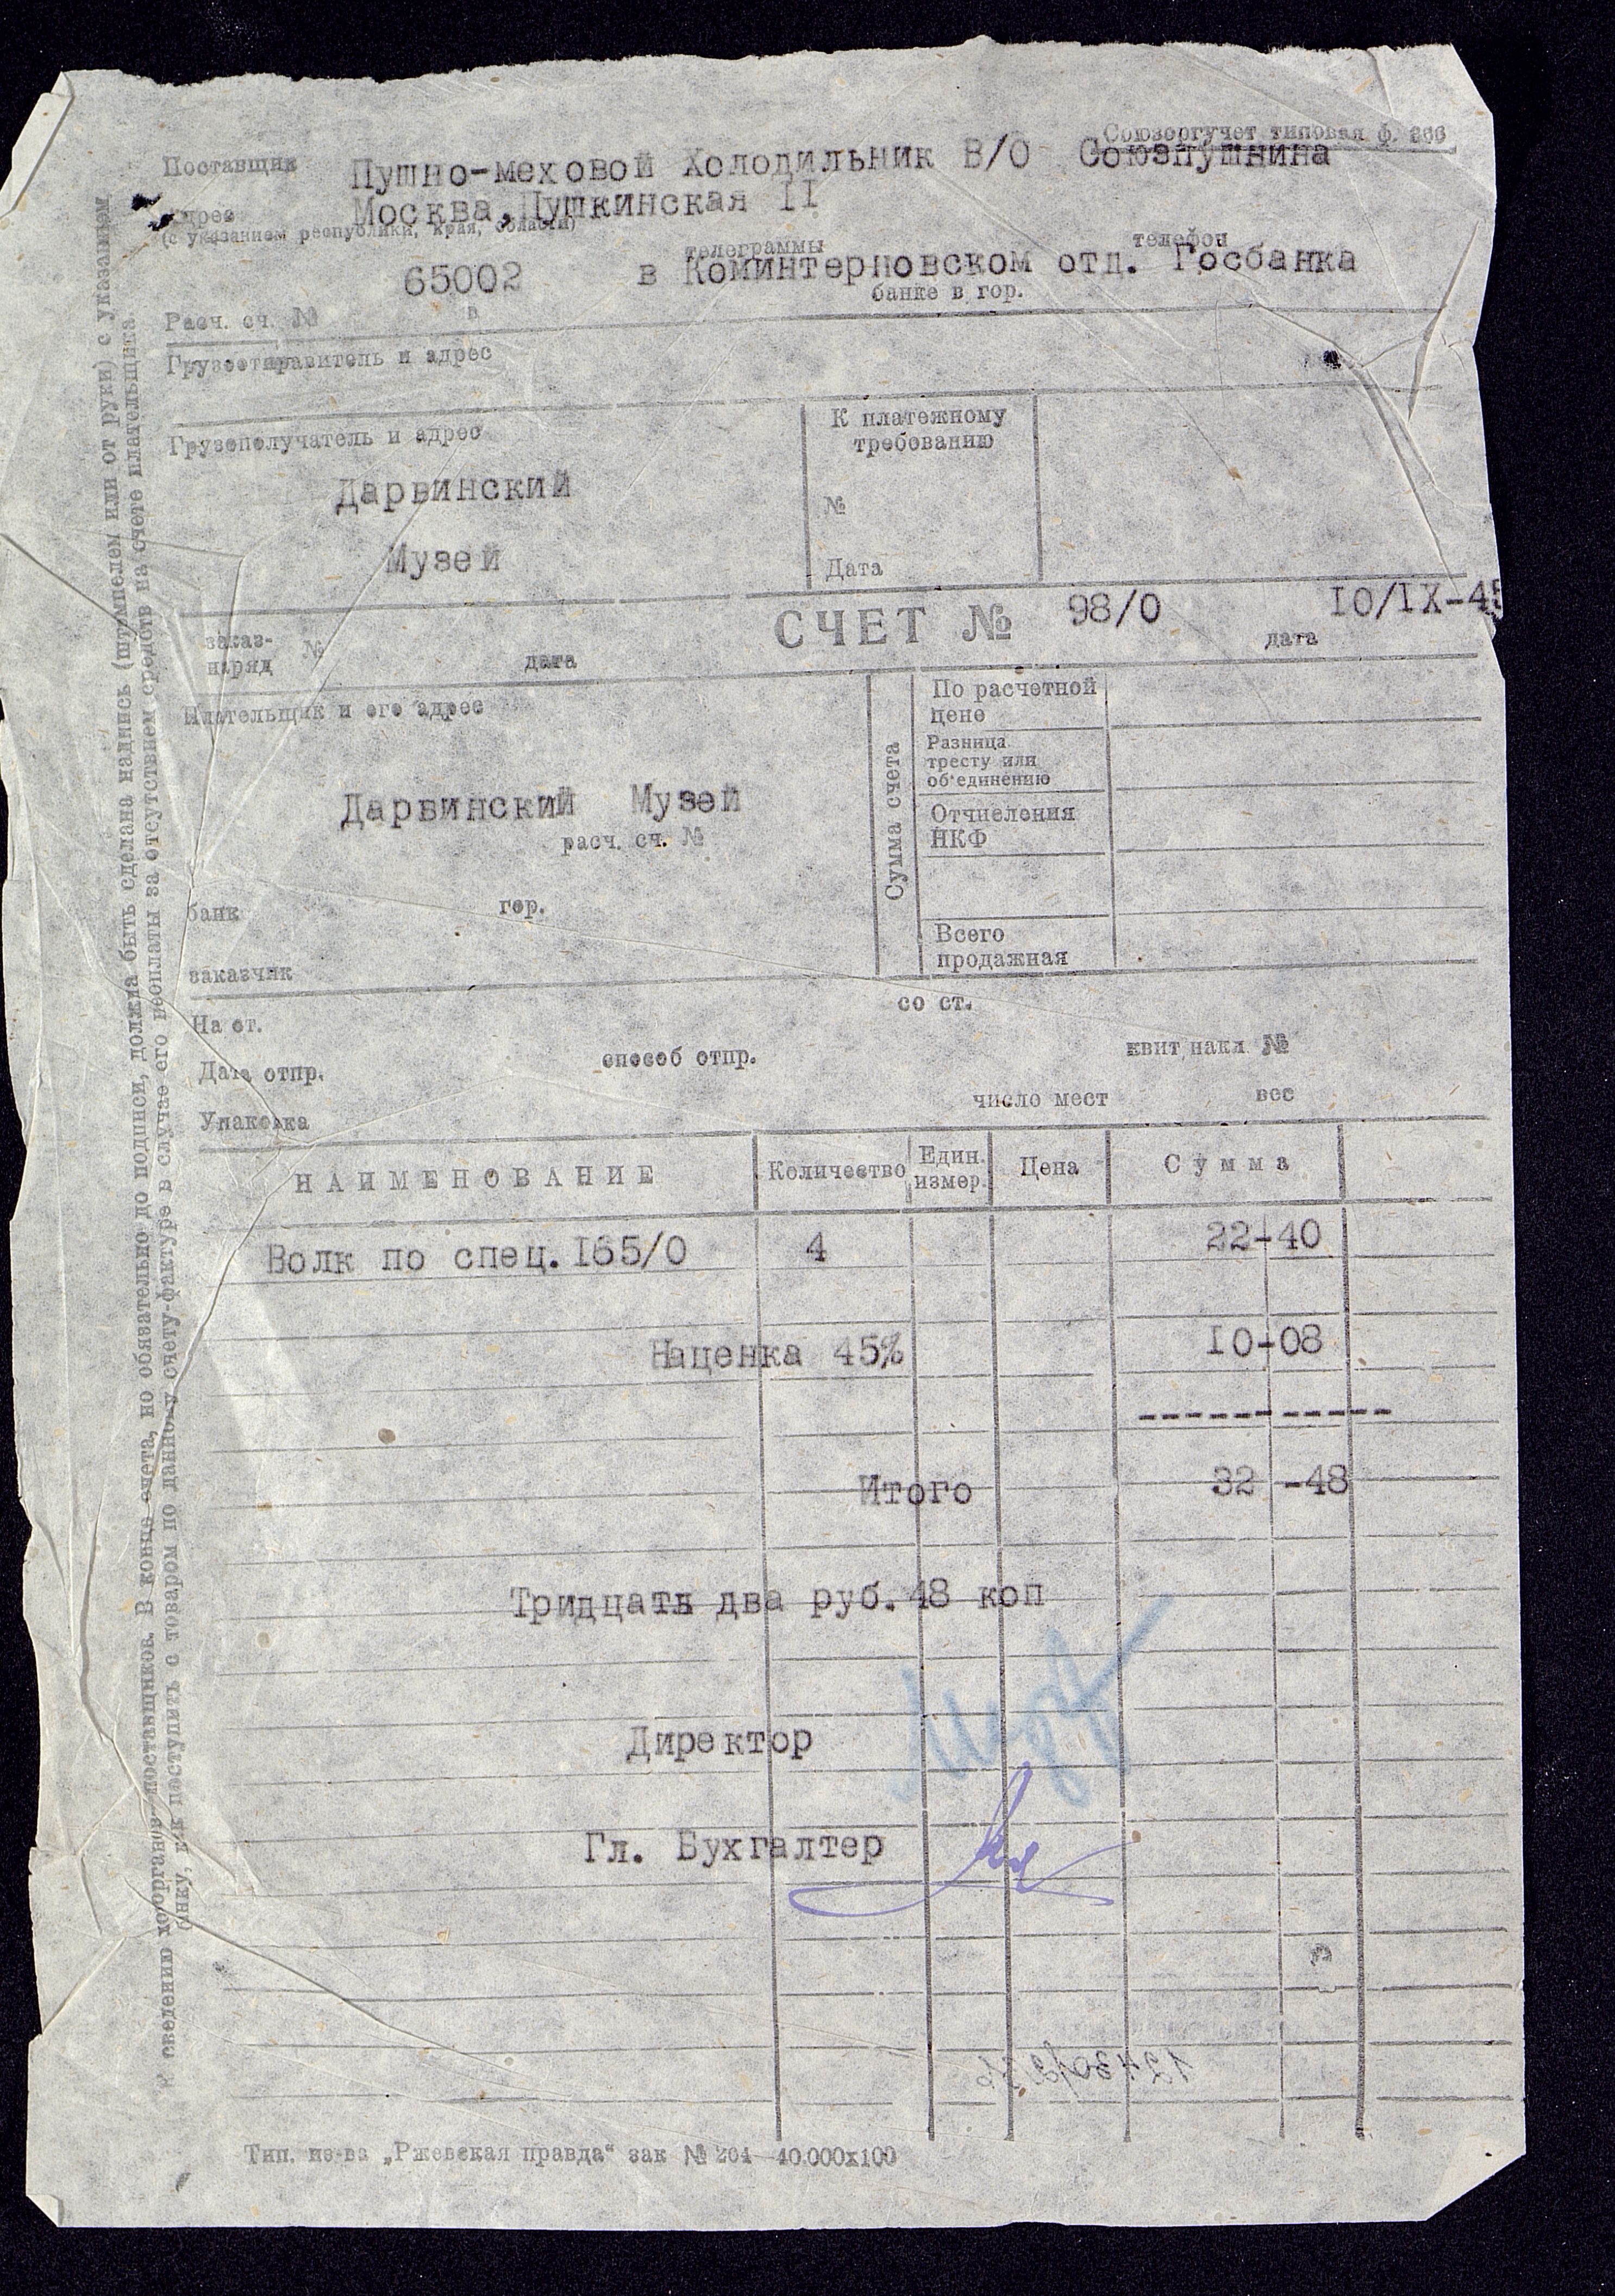 Союзоргучет типовая ф. 206
Поставщик Пушно-меховой Холодильник В/О Союзпушнина
Адрес Москва, Пушкинская II
(с указанием республики, края, области)
телеграммы телефон
65002 в Коминтерновском отд. Госбанка
Расч. сч. № в банке в гор.
Грузоотправитель и адрес
Грузополучатель и адрес
К платежному
требованию
Дарвинский
№
Музей
Дата
СЧЕТ № 98/0 IO/IX-45
заказ-
наряд № дата
дата
Плательщик и его адрес
Сумма счета
По расчетной
цене
Разница
тресту или
об'единению
Дарвинский Музей
Отчисления
НКФ
расч. сч. №
банк гор.
Всего
продажная
заказчик
На ст. со ст.
Дата отпр. способ отпр. квит. накл №
Упаковка число мест вес
НАИМЕНОВАНИЕ Количество Един. измер. Цена Сумма
Волк по спец. I65/0 4 22-40
Наценка 45% IO-08
------------
Итого 32 -48
Тридцать два руб. 48 коп
Директор
Гл. Бухгалтер
Тип. из-ва „Ржевская правда“ зак № 204—40.000х100
К сведению хозорганов-поставщиков. В конце счета, но обязательно до подписи, должна быть сделана надпись (штемпелем или от руки) с указанием
банку, как поступить с товаром по данному счету-фактуре в случае его неоплаты за отсутствием средств на счете плательщика.